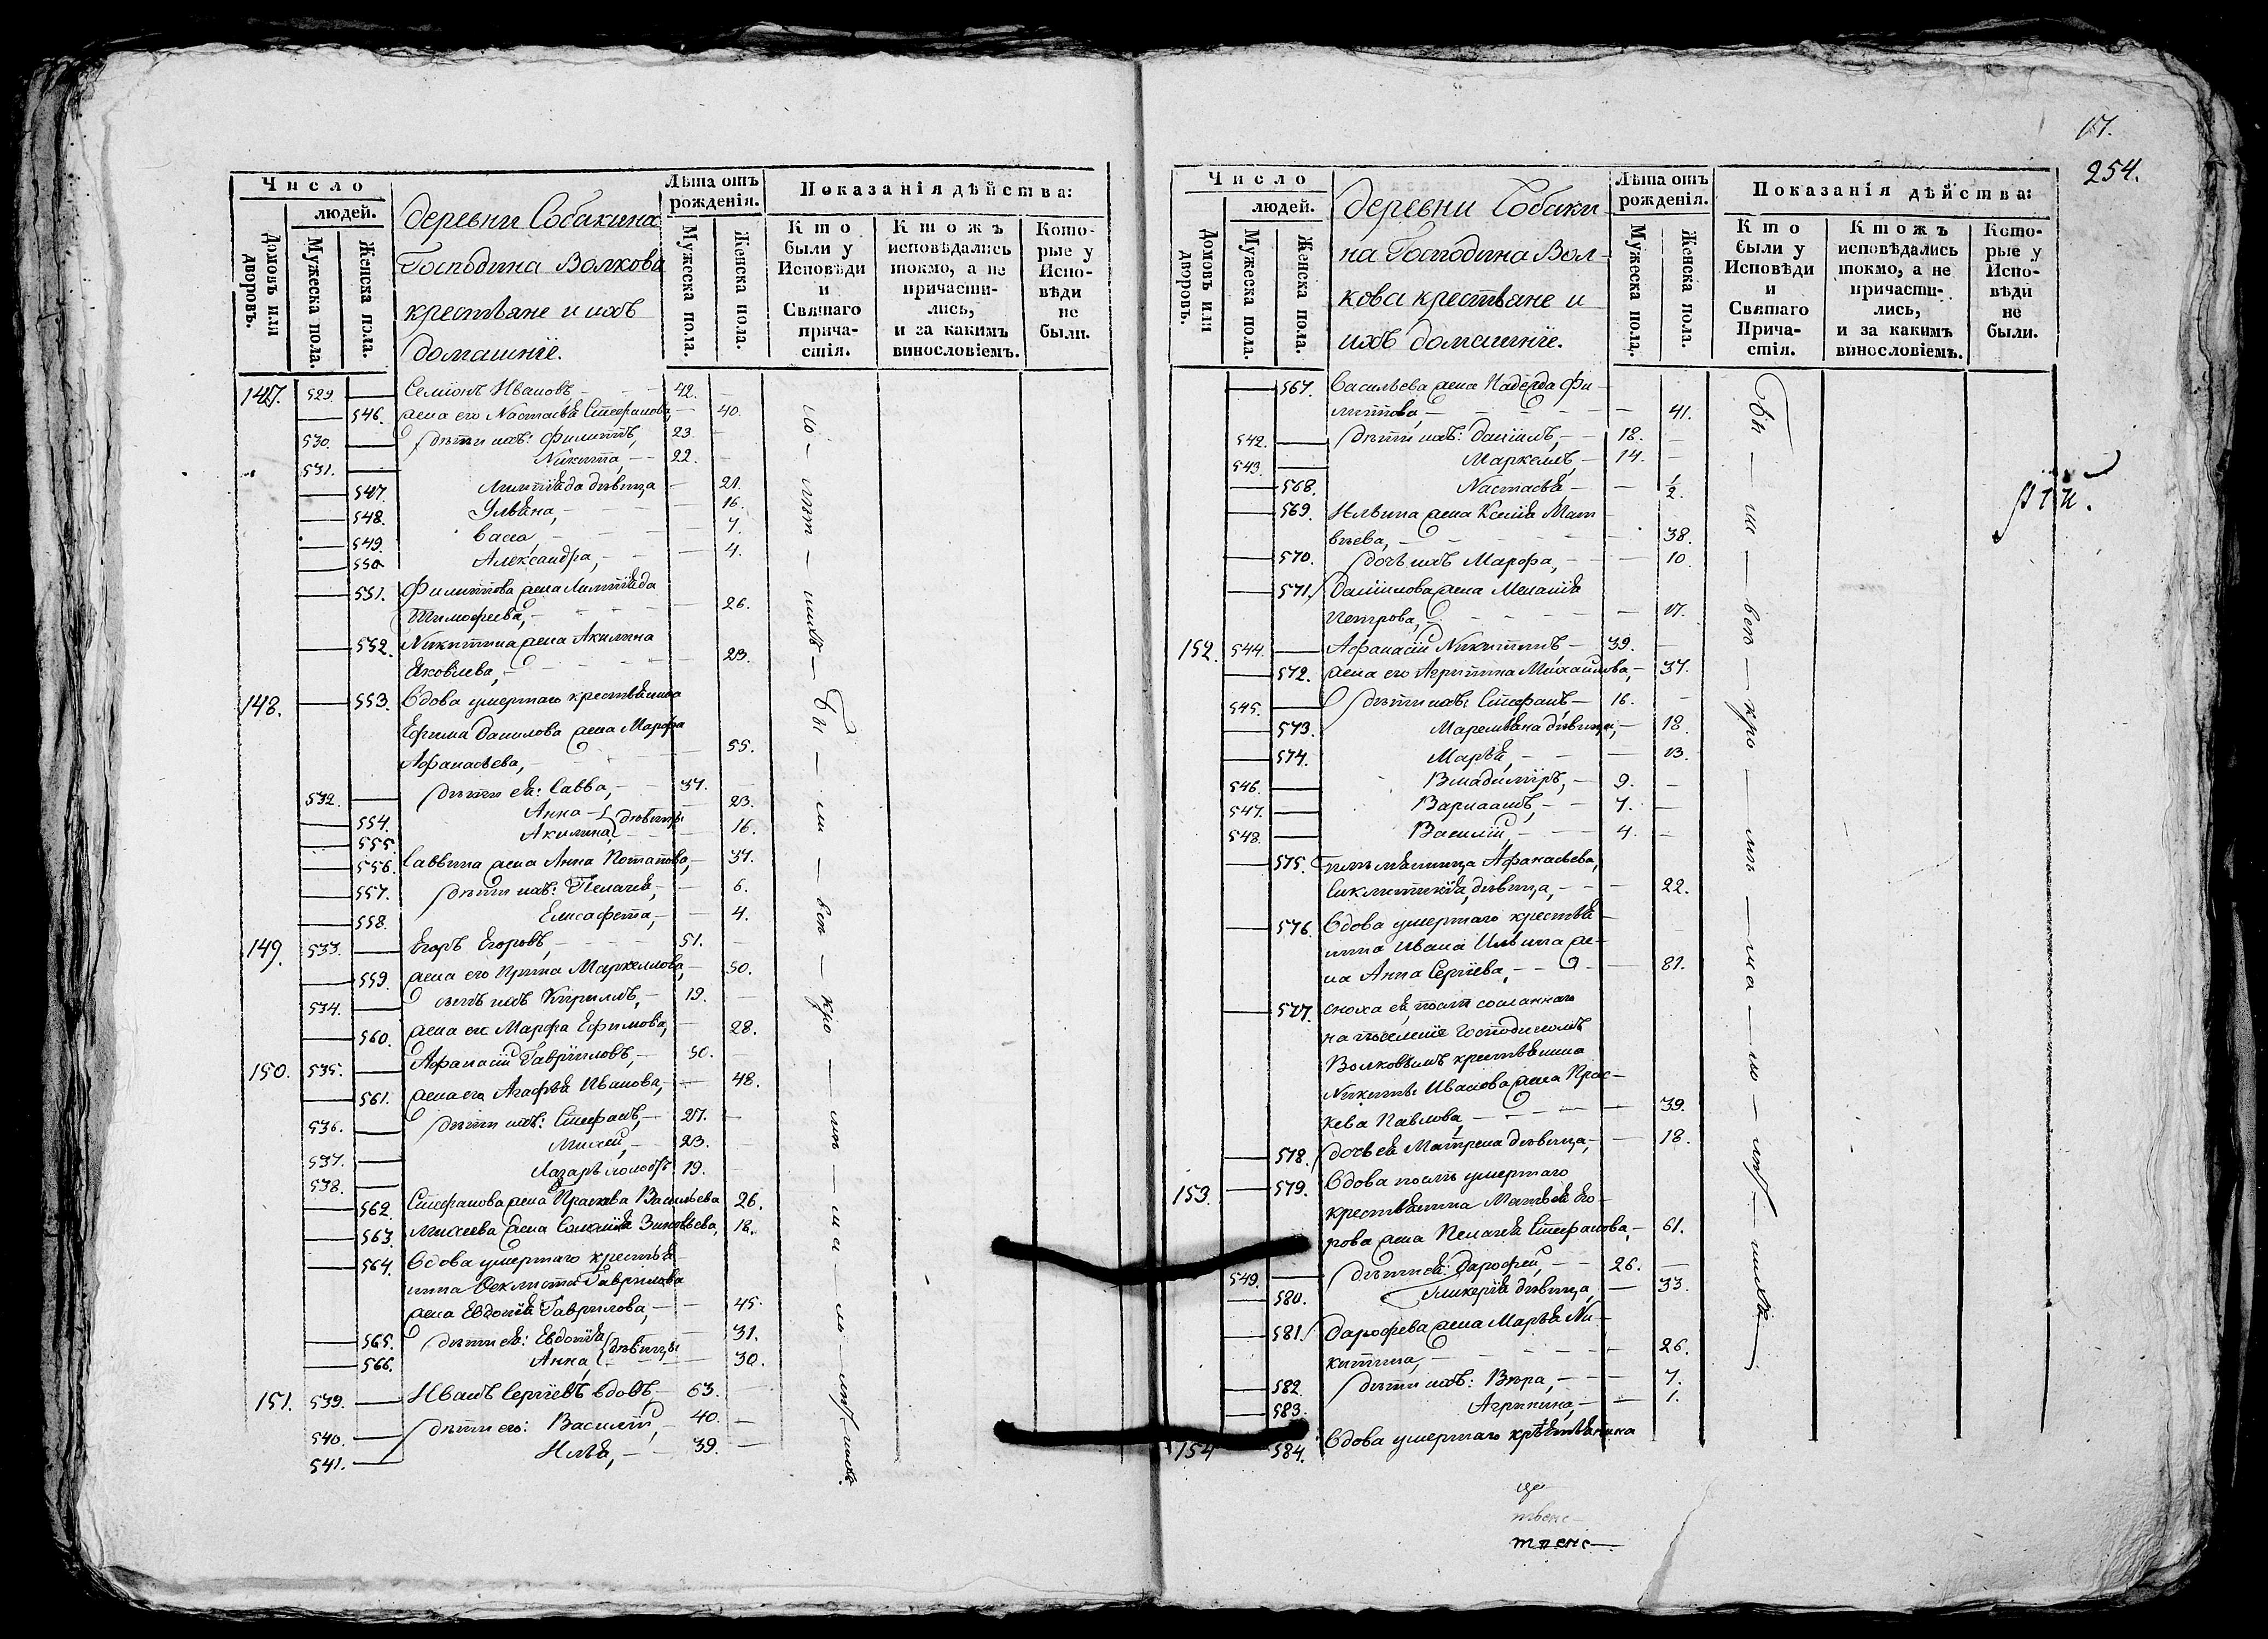 Число
людей.
Домовъ или дворовъ.
Мужеска пола.
Женска пола.
деревни Собакина
Господина Волкова
крестьяне и ихъ
домашніе.
Лѣта отъ рожденія.
Мужеска пола.
Женска пола.
Показанія дѣйства:
Кто были у Исповѣди и Святаго причастія.
Ктожъ исповѣдались токмо, а не причастились, и за какимъ винословіемъ.
Которые у Исповѣди не были.
147. 529. Семіонъ Ивановъ, 42.
546. жена его Настасья Стефанова, 40.
530. дѣти ихъ: Филиппъ, 23.
531. Никита, 22.
547. девица 21.
548. Ульяна, 16.
549. Васса, 7.
550 Александра, 4.
551. Филиппова жена
Тимофеева, 26.
552. Никитина жена Акилина
Яковлева, 23.
148. 553. Вдова умершаго крестьянина
Ефима Данилова жена Марфа
Афанасьева, 55.
532. дѣти ея: Савва, 37.
554. Анна 23.
555. Акилина девицы 16.
556. Саввина жена Анна Потапова, 37.
557. дѣти ихъ: Пелагея, 6.
558. Елисафета, 4.
149. 533. Егоръ Егоровъ, 51.
559. жена его Ирина Маркеллова, 50.
534. сынъ ихъ Кириллъ, 19.
560. жена его Марфа Ефимова, 28.
150. 535. Афанасій Гавріиловъ, 50.
561. жена его Агафья Иванова, 48.
536. дѣти ихъ: Стефанъ, 27.
537. Михей, 23.
538. Лазарь холостъ 19.
562. Стефанова жена Прасковья Васильева 26.
563. Михеева жена Соломія Зиновьева, 18.
564. Вдова умершаго крестья-
нина Феклиста Гаврилова
жена Евдокія Гаврилова, 45.
565. дѣти ея: Евдокія 31.
566. Анна, девицы 30.
151. 539. Иванъ Сергіевъ вдовъ, 63.
540. дѣти его: Василій, 40.
541. Илья, 39.
17.
254.
Число
людей.
Домовъ или дворовъ.
Мужеска пола.
Женска пола.
деревни Собаки-
на Господина Вол-
кова крестьяне и
ихъ домашніе.
Лѣта отъ рожденія.
Мужеска пола.
Женска пола.
Показанія дѣйства:
Кто были у Исповѣди и Святаго Причастія.
Ктожъ исповѣдались токмо, а не причастились, и за какимъ винословіемъ.
Которые у Исповѣди не были.
567. Васильева жена Надежда Фи-
липпова, 41.
542. дѣти ихъ: Даніилъ, 18.
543. Маркеллъ, 14.
568. Настасья 1/2.
569. Ильина жена Ксенія Мат-
вѣева, 38.
570. дочь ихъ Марфа, 10.
571. Даніилова жена Меланія
Петрова, 17.
152. 544. Афанасій Никитинъ, 39.
572. жена его Агриппина Михаилова, 37.
545. дѣти ихъ: Стефанъ 16.
573. Маремьяна девица, 18.
574. Марья, 13.
546. Владиміръ, 9.
547. Варлаамъ, 7.
548. Василій, 4.
575. племянница Афанасьева,
Сиклитикія, девица, 22.
576. Вдова умершаго крестья-
нина Ивана Ильина же-
на Анна Сергіева, 81.
577. сноха ея, сосланнаго
на поселеніе Господиномъ
Волковымъ крестьянина
Никиты Иванова жена Прас-
кева Павлова, 39.
578. дочь ея Матрена девица, 18.
153. 579. Вдова умершаго
крестьянина Матвея Его-
рова жена Пелагея Стефанова, 61.
549. дѣти ея: Дарофей, 26.
580. Гликерія девица, 33.
581. Дарофеева жена Марья Ни-
китина, 26.
582. дѣти ихъ: Вера, 7.
583. Агрипина, 1.
154 584. Вдова умершаго крестьянина